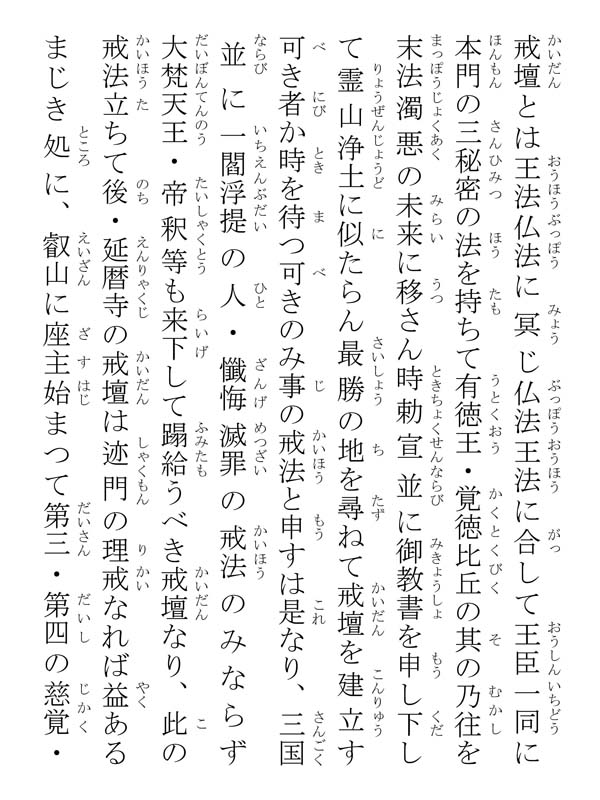 戒壇とは王法仏法に冥じ仏法王法に合して王臣一同に
本門の三秘密の法を持ちて有徳王・覚徳比丘の其の乃往を
末法濁悪の未来に移さん時勅宣並に御教書を申し下し
て霊山浄土に似たらん最勝の地を尋ねて戒壇を建立す
可き者か時を待つ可きのみ事の戒法と申すは是なり、三国
並に一閻浮提の人・懺悔滅罪の戒法のみならず
大梵天王・帝釈等も来下して蹋給うべき戒壇なり、此の
戒法立ちて後・延暦寺の戒壇は迹門の理戒なれば益ある
まじき処に、叡山に座主始まつて第三・第四の慈覚・